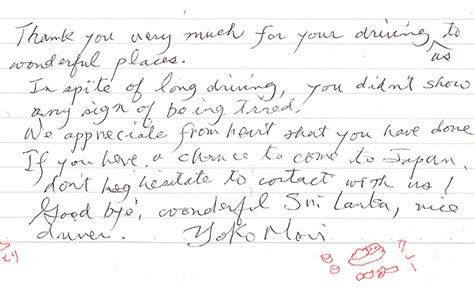 Thank you very much for your driving us to
wonderful places.
In spite of long driving, you didn't show
any sign of being tired.
We appreciate from heart that you have done
If you have a chance to come to Japan,
don't hesitate to contact with us!
Good bye, wonderful Sri Lanka, nice
driver. Yoko Mori